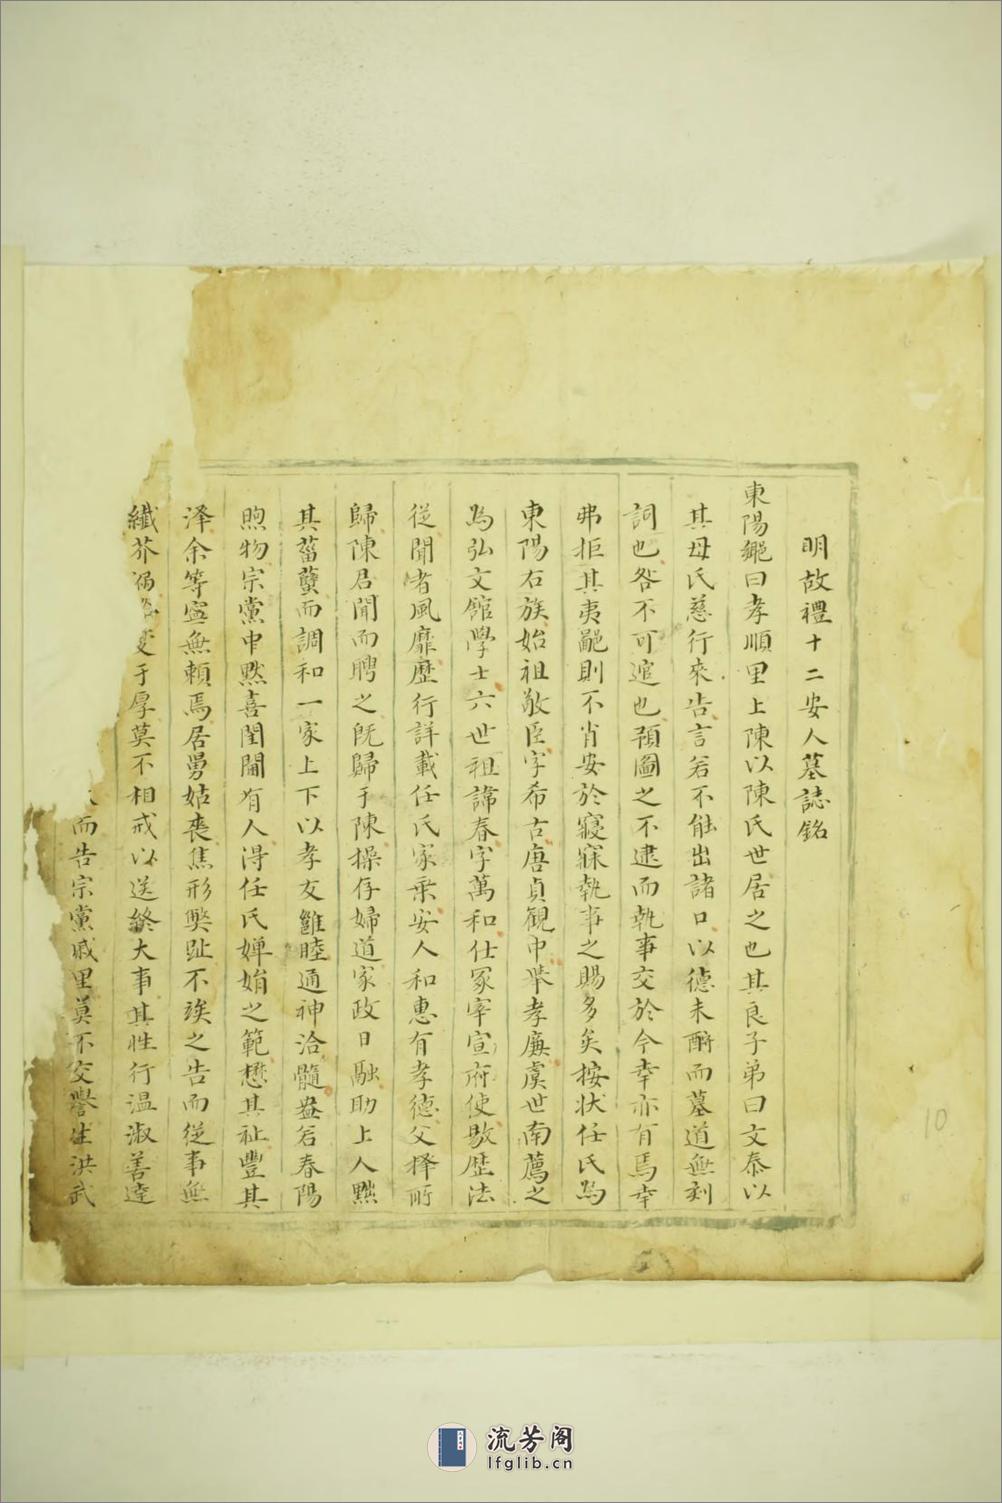 明故禮十二安人墓誌銘
東陽鄉曰孝順里上陳以陳氏世居之也其良子弟曰文泰以
其母氏慈行來告言若不能出諸口以德未酬而墓道無刻
詞也咎不可逭也預圖之不逮而執事交於今幸亦有焉幸
弗拒其夷鄙則不肖安於寢寐執事之賜多矣按狀任氏為
東陽右族始祖敬臣字希古唐貞觀中舉孝廉虞世南薦之
為弘文館學士六世祖諱春字萬和仕冢宰宣府使敭歷法
從聞者風靡歷行詳載任氏家乘安人和惠有孝德父擇所
歸陳君聞而聘之既歸于陳操存婦道家政日融助上人黙
其菑蠥而調和一家上下以孝友雝睦通神洽髓盎若春陽
煦物宗黨中黙喜閨閫有人淂任氏嬋娟之範懋其祉豐其
泽余等寧無頼焉居舅姑喪焦形
趾不俟之告而從事無
纎芥
于厚莫不相戒以送終大事其性行温淑善達
而告宗黨戚里莫不交譽生洪武
10
流芳阁
lfglib.cn